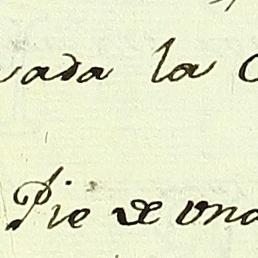 ada la
Pie de una